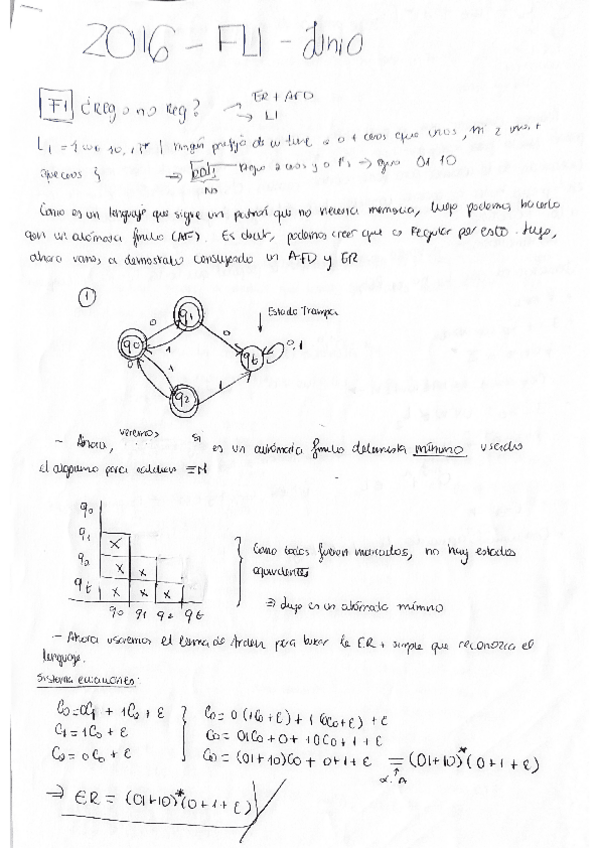 2016 - FLI - Junio
F1 ¿Reg o no Reg? → ER + AFD
→ LI
L₁ = { w ∈ {0,1}* | ningún prefijo de w tiene 2 o + ceros que unos, ni 2 unos +
que ceros } ⇒
No
→ 01 10
Como es un lenguaje que sigue un patrón que no necesita memoria, luego podemos hacerlo
con un autómata finito (AF). Es decir, podemos creer que es regular por esto. Luego,
ahora vamos a demostrarlo construyendo un AFD y ER
1
q0 q1 q2 qt
0 1 0 1 0 1 0,1
Estado Trampa
- Ahora, veremos si es un autómata finito determinista mínimo usando
el algoritmo para calcular ≡M
q0
q1 X
q2 X X
qt X X X
q0 q1 q2 qt
Como todos fueron marcados, no hay estados
equivalentes
⇒ luego es un autómata mínimo
- Ahora usaremos el lema de Arden para buscar la ER + simple que reconozca el
lenguaje.
Sistema ecuaciones:
C0 = 0C1 + 1C2 + ε } C0 = 0(1C0+ε) + 1(0C0+ε) + ε
C1 = 1C0 + ε C0 = 01C0 + 0 + 10C0 + 1 + ε
C2 = 0C0 + ε C0 = (01+10)C0 + 0+1+ε = (01+10)*(0+1+ε)
L. A
⇒ ER = (01+10)*(0+1+ε)